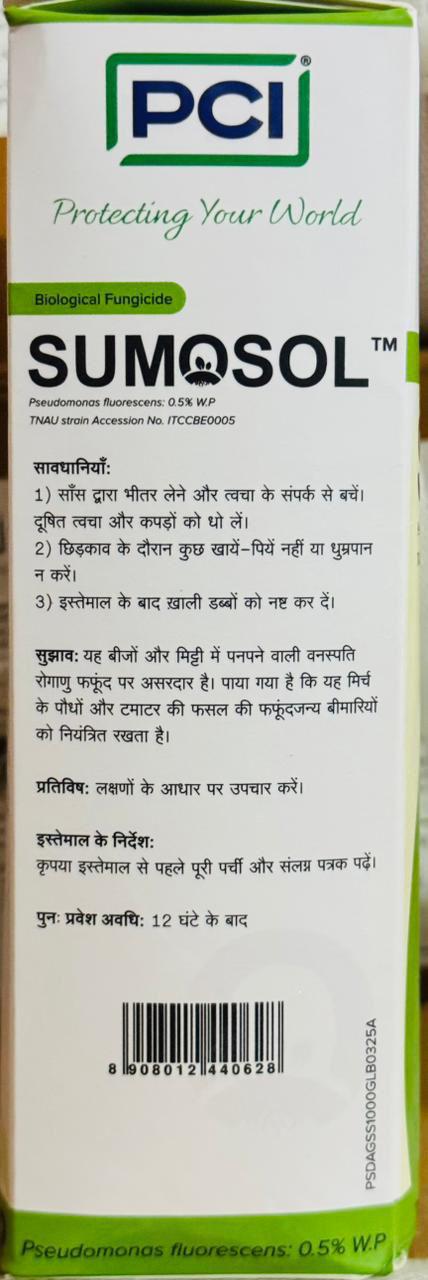 PCI®
Protecting Your World
Biological Fungicide
SUMOSOL™
Pseudomonas fluorescens: 0.5% W.P
TNAU strain Accession No. ITCCBE0005
सावधानियाँ:
1) साँस द्वारा भीतर लेने और त्वचा के संपर्क से बचें।
दूषित त्वचा और कपड़ों को धो लें।
2) छिड़काव के दौरान कुछ खायें-पियें नहीं या धुम्रपान
न करें।
3) इस्तेमाल के बाद ख़ाली डब्बों को नष्ट कर दें।
सुझाव: यह बीजों और मिट्टी में पनपने वाली वनस्पति
रोगाणु फफूंद पर असरदार है। पाया गया है कि यह मिर्च
के पौधों और टमाटर की फसल की फफूंदजन्य बीमारियों
को नियंत्रित रखता है।
प्रतिविष: लक्षणों के आधार पर उपचार करें।
इस्तेमाल के निर्देश:
कृपया इस्तेमाल से पहले पूरी पर्ची और संलग्न पत्रक पढ़ें।
पुनः प्रवेश अवधि: 12 घंटे के बाद
8 908012 440628
PSDAGSS1000GLB0325A
Pseudomonas fluorescens: 0.5% W.P